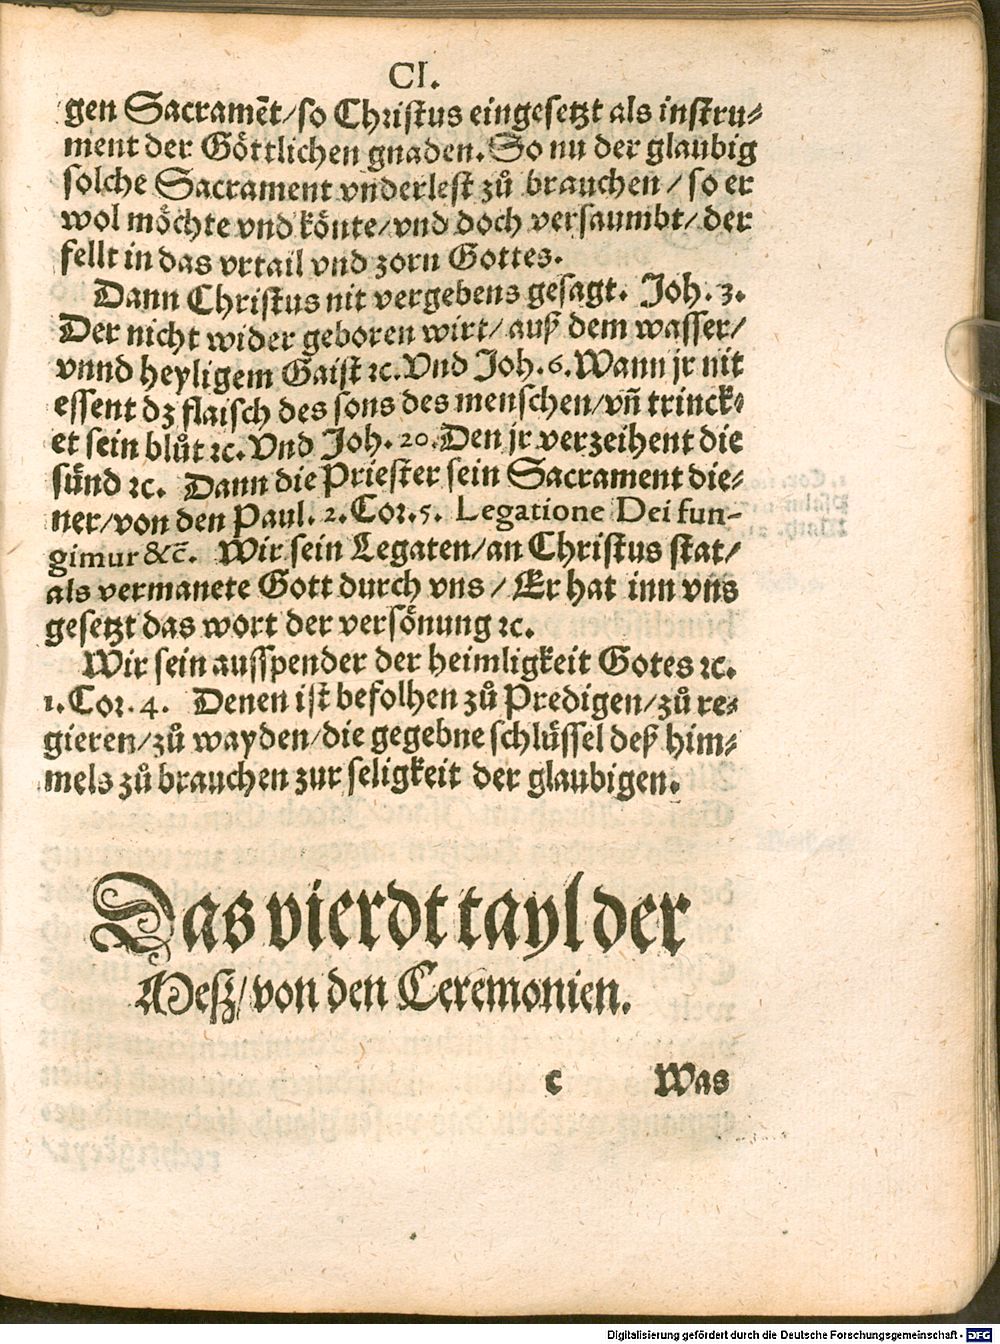 CI.
gen Sacramēt/so Christus eingesetzt als instru⸗
ment der Göttlichen gnaden. So nu der glaubig
solche Sacrament vnderlest zů brauchen/ so er
wol möchte vnd könte/vnd doch versaumbt/ der
fellt in das vrtail vnd zorn Gottes.
Dann Christus nit vergebens gesagt. Joh. 3.
Der nicht wider geboren wirt/ auß dem wasser/
vnnd heyligem Gaist ꝛc. Vnd Joh. 6. Wann jr nit
essent dz flaisch des sons des menschen/vñ trinck⸗
et sein blůt ꝛc. Vnd Joh. 20. Den jr verzeihent die
sünd ꝛc. Dann die Priester sein Sacrament die⸗
ner/von den Paul. 2. Cor. 5. Legatione Dei fun-
gimur &c̄. Wir sein Legaten/an Christus stat/
als vermanete Gott durch vns / Er hat inn vns
gesetzt das wort der versönung ꝛc.
Wir sein ausspender der heimligkeit Gotes ꝛc.
1. Cor. 4. Denen ist befolhen zů Predigen/zů re⸗
gieren/zů wayden/die gegebne schlüssel deß him⸗
mels zů brauchen zur seligkeit der glaubigen.
Das vierdt tayl der
Mesz/von den Ceremonien.
c Was
Digitalisierung gefördert durch die Deutsche Forschungsgemeinschaft - DFG